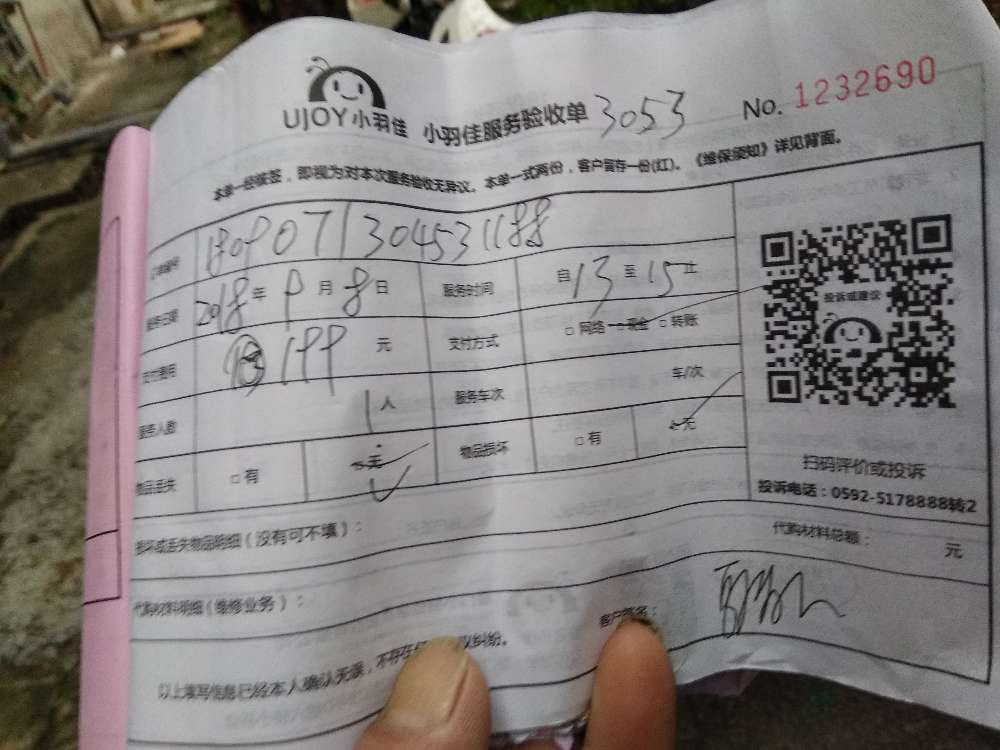 UJOY小羽佳 小羽佳服务验收单 3053 No. 1232690
本单一经核签，即视为对本次服务验收无异议。本单一式两份，客户留存一份(红)。《维保须知》详见背面。
订单编号 1809071304531188
服务日期 2018年9月8日 服务时间 自13至15止
支付费用 199元 支付方式 □网络 □现金 □转账
投诉或建议
服务人数 1人 服务车次 车/次
物品丢失 □有 无 物品损坏 □有 无
扫码评价或投诉
投诉电话：0592-5178888转2
损坏或丢失物品明细（没有可不填）：
代购材料总额： 元
代购材料明细（维修业务）：
以上填写信息已经本人确认无误，不存在 纠纷。
客户签名：